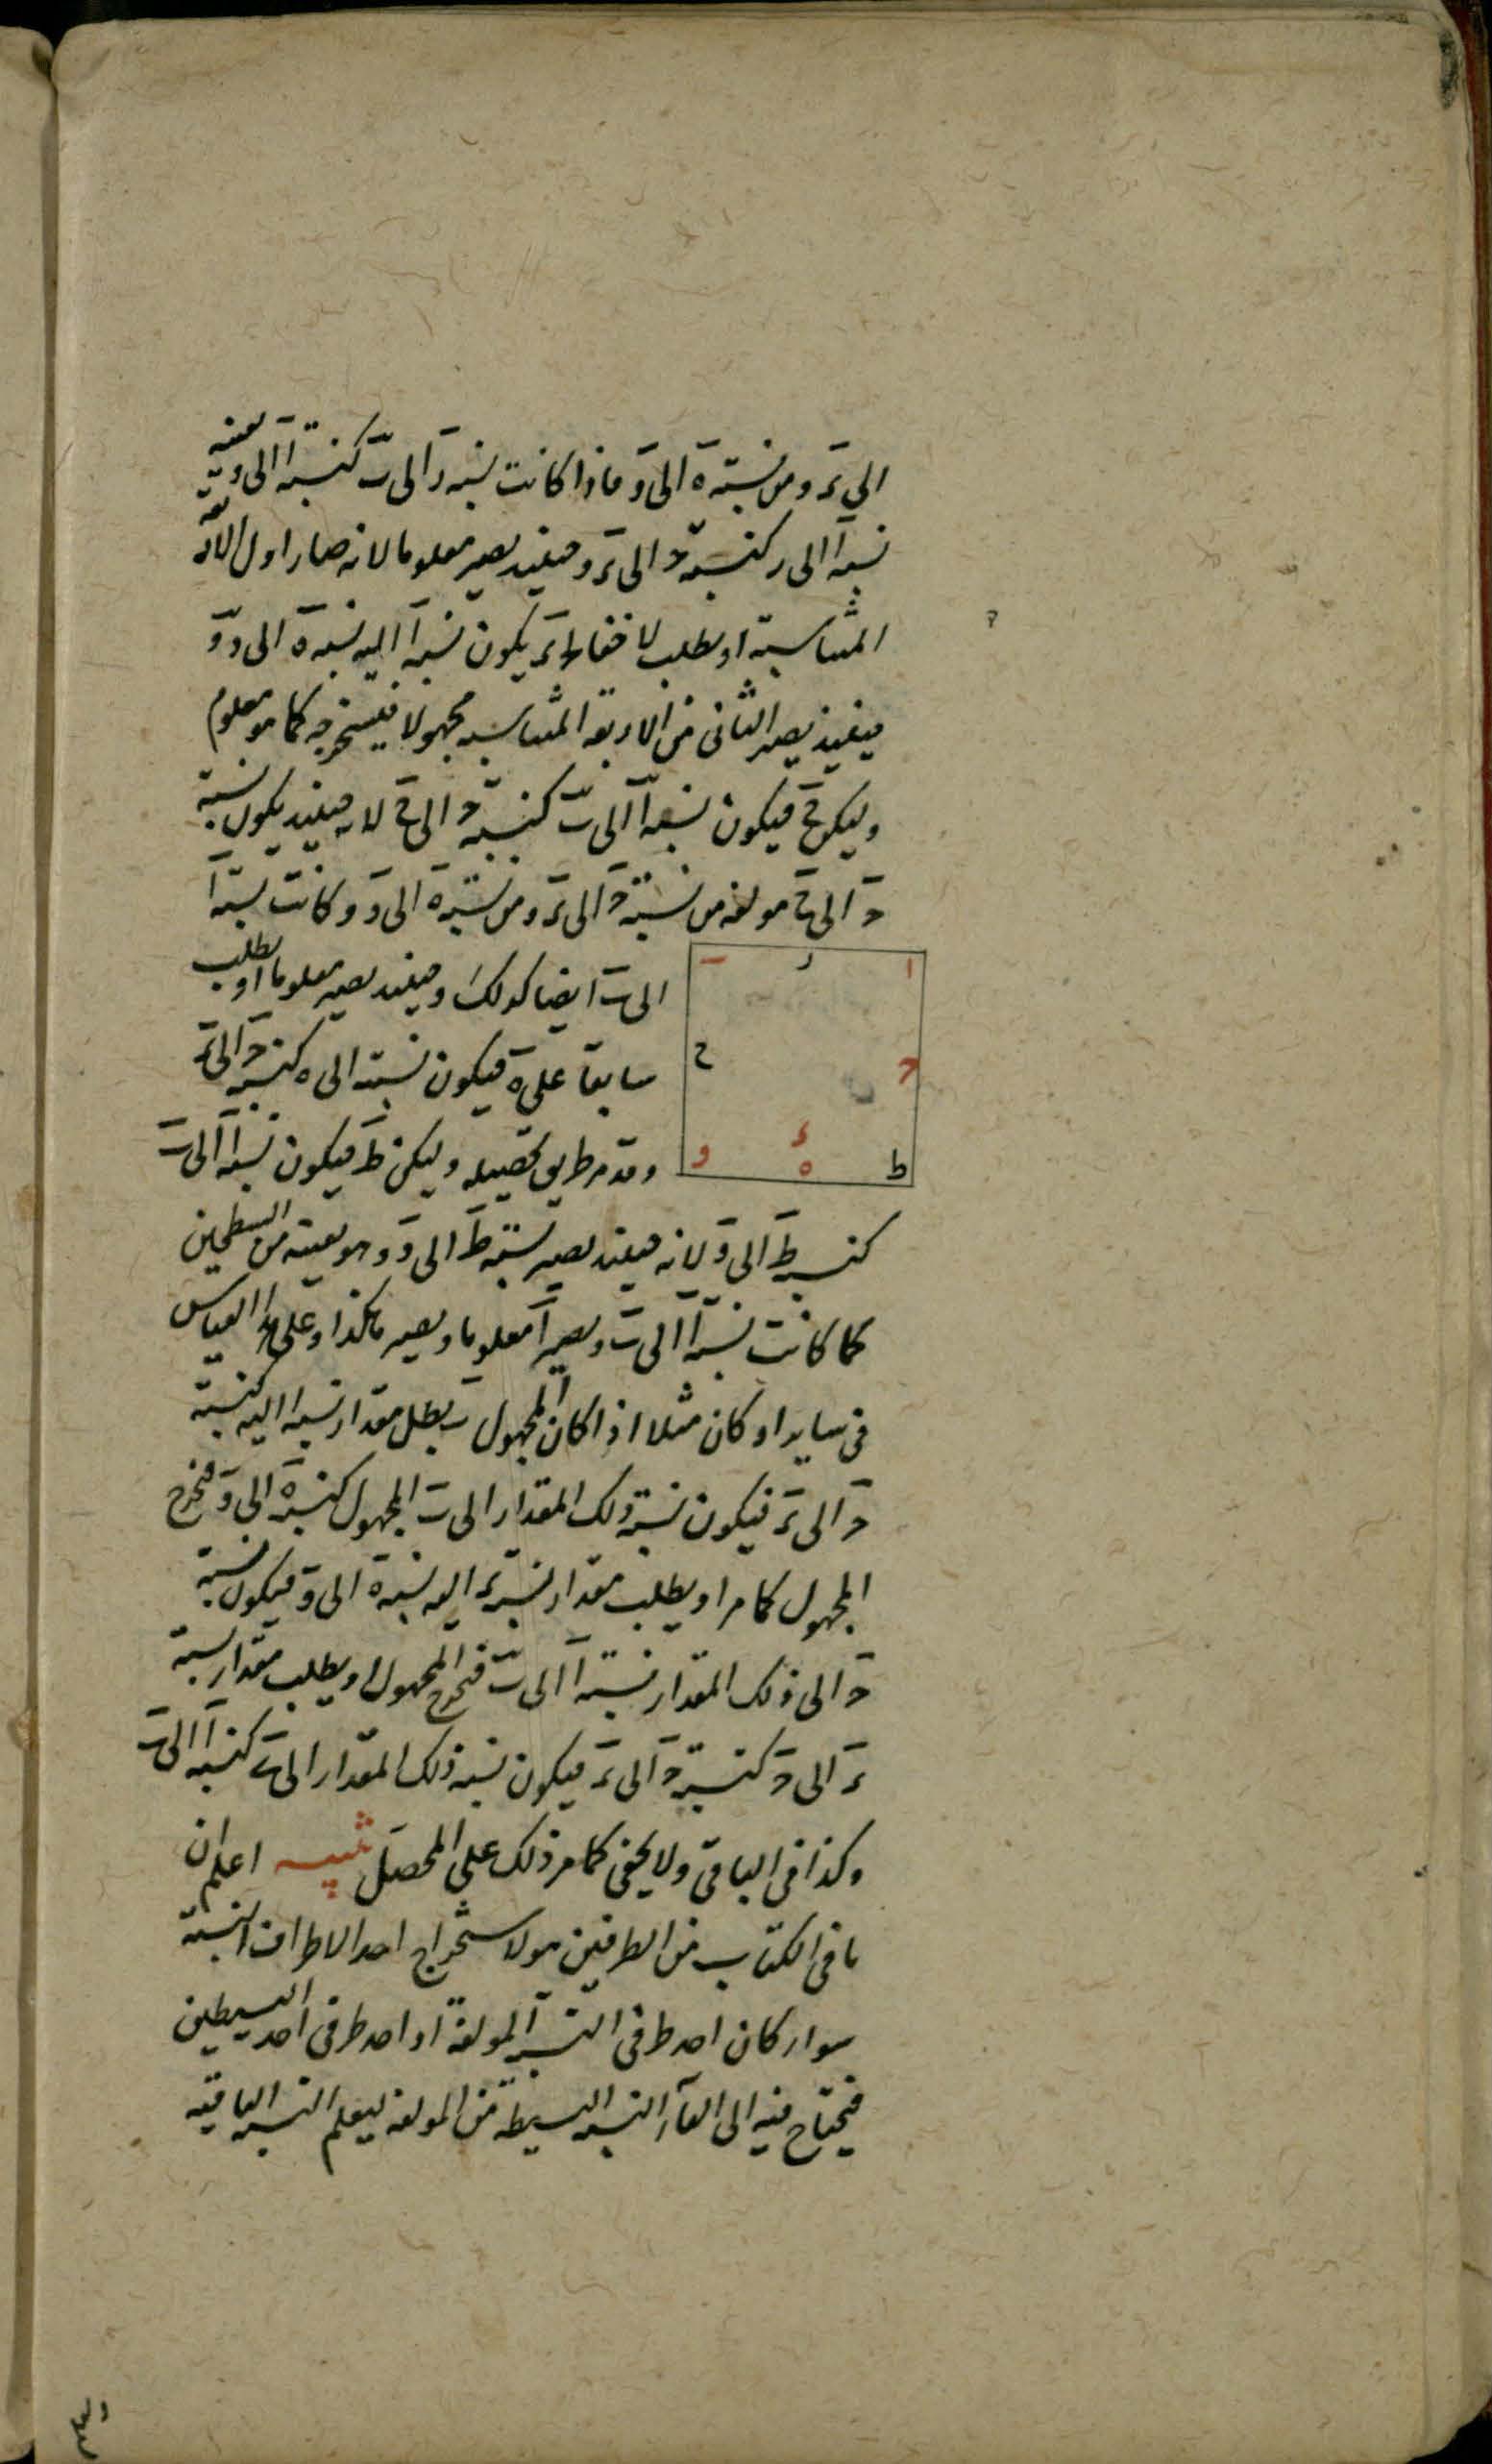 الى ءَ ومن نسبة هَ الى وَ فاذا كانت نسبة رَ الى بَ كنسبة ه الى و بقيت
نسبة ا الى ر كنسبة حَ الى ءَ وحينئذ يصير معلوما لانه صار اول الاربعة
المتناسبة او يطلب يكون نسبة ءَ اليه نسبة هَ الى وَ و
حينئذ يصير الثانى من الاربعة المتناسبة مجهولا فيستخرجه كما هو معلوم
وليكن حَ فيكون نسبة اَ الى بَ كنسبة حَ الى حَ لانه حينئذ يكون نسبة
حَ الى حَ مولفه من نسبة حَ الى ءَ ومن نسبة هَ الى وَ وكانت نسبة اَ
الى بَ ايضا كذلك وحينئذ يصير معلوما او يطلب
سابقا على هَ فيكون نسبته الى ه كنسبة حَ الى ءَ
وقد مر طريق تحصيله وليكن طَ فيكون نسبة اَ الى بَ
كنسبة طَ الى وَ لانه حينئذ يصير نسبة طَ الى وَ مولفة من البسيطين
كما كانت نسبة اَ الى بَ ويصير اَ معلوما ويصير هكذا وعلى هذا القياس
فى ساير اذا كان مثلا اذا كان المجهول بَ يطلب مقدار نسبة ا اليه كنسبة
حَ الى ءَ فيكون نسبة ذلك المقدار الى بَ المجهول كنسبة هَ الى وَ فيخرج
المجهول كما مر او يطلب مقدار نسبة ءَ اليه نسبة هَ الى وَ فيكون نسبة
حَ الى ذلك المقدار نسبة اَ الى بَ فيخرج المجهول او يطلب مقدار نسبة
الى كنسبة حَ الى ءَ فيكون نسبة ذلك المقدار الى كنسبة اَ الى بَ
وكذا فى الباقى ولا يخفى كما مر ذلك على المحصل تنبيه اعلم ان
ما فى الكتاب من الطرفين هو لاستخراج احد الاطراف النسبة
سواء كان احد طرفى النسبة المولفة او احد طرفى احد البسيطين
فيحتاج فيه الى القاء النسبة البسيطة من المولفة ليعلم النسبة الباقية
ا ر ب
ح ح
ء
ط ه و